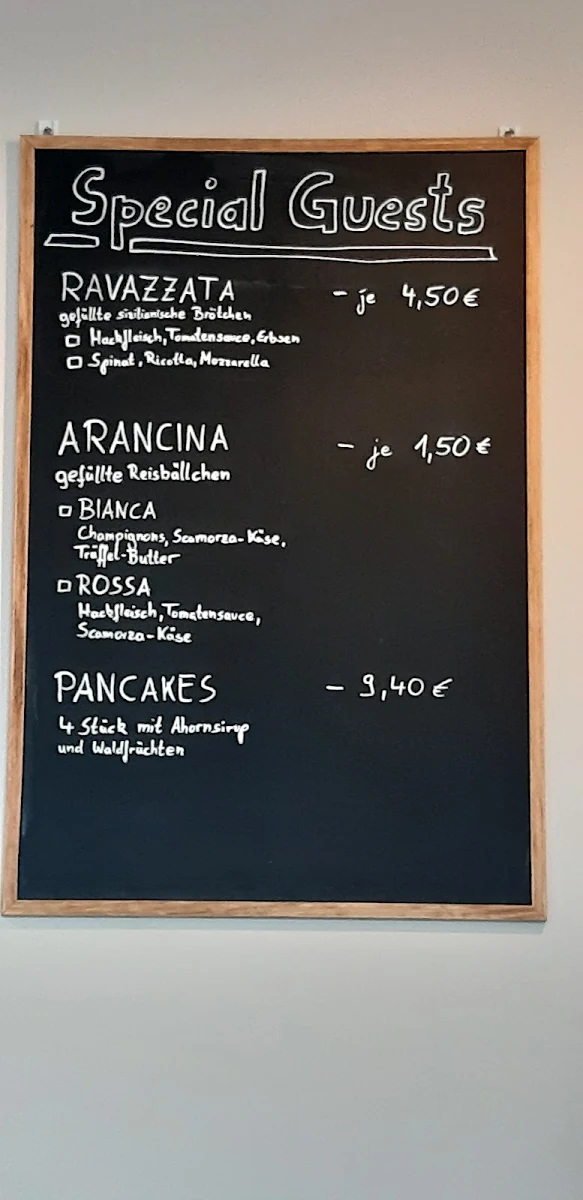 Special Guests
RAVAZZATA - je 4,50€
gefüllte sizilianische Brötchen
□ Hackfleisch, Tomatensauce, Erbsen
□ Spinat, Ricotta, Mozzarella
ARANCINA - je 1,50€
gefüllte Reisbällchen
□ BIANCA
Champignons, Scamorza-Käse,
Trüffel-Butter
□ ROSSA
Hackfleisch, Tomatensauce,
Scamorza-Käse
PANCAKES - 9,40€
4 Stück mit Ahornsirup
und Waldfrüchten